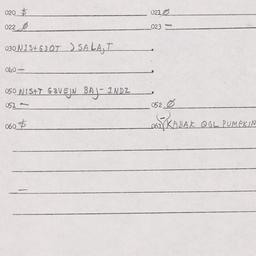 020 $ 021 Ø
022 Ø 023 –
030 NIS+GJOT JSALA,T .
040 – .
050 NIS+T GBVEJN BAJ-INDZ .
051 – 052 Ø
060 $ 061 KABAK QGL PUMPKIN
–